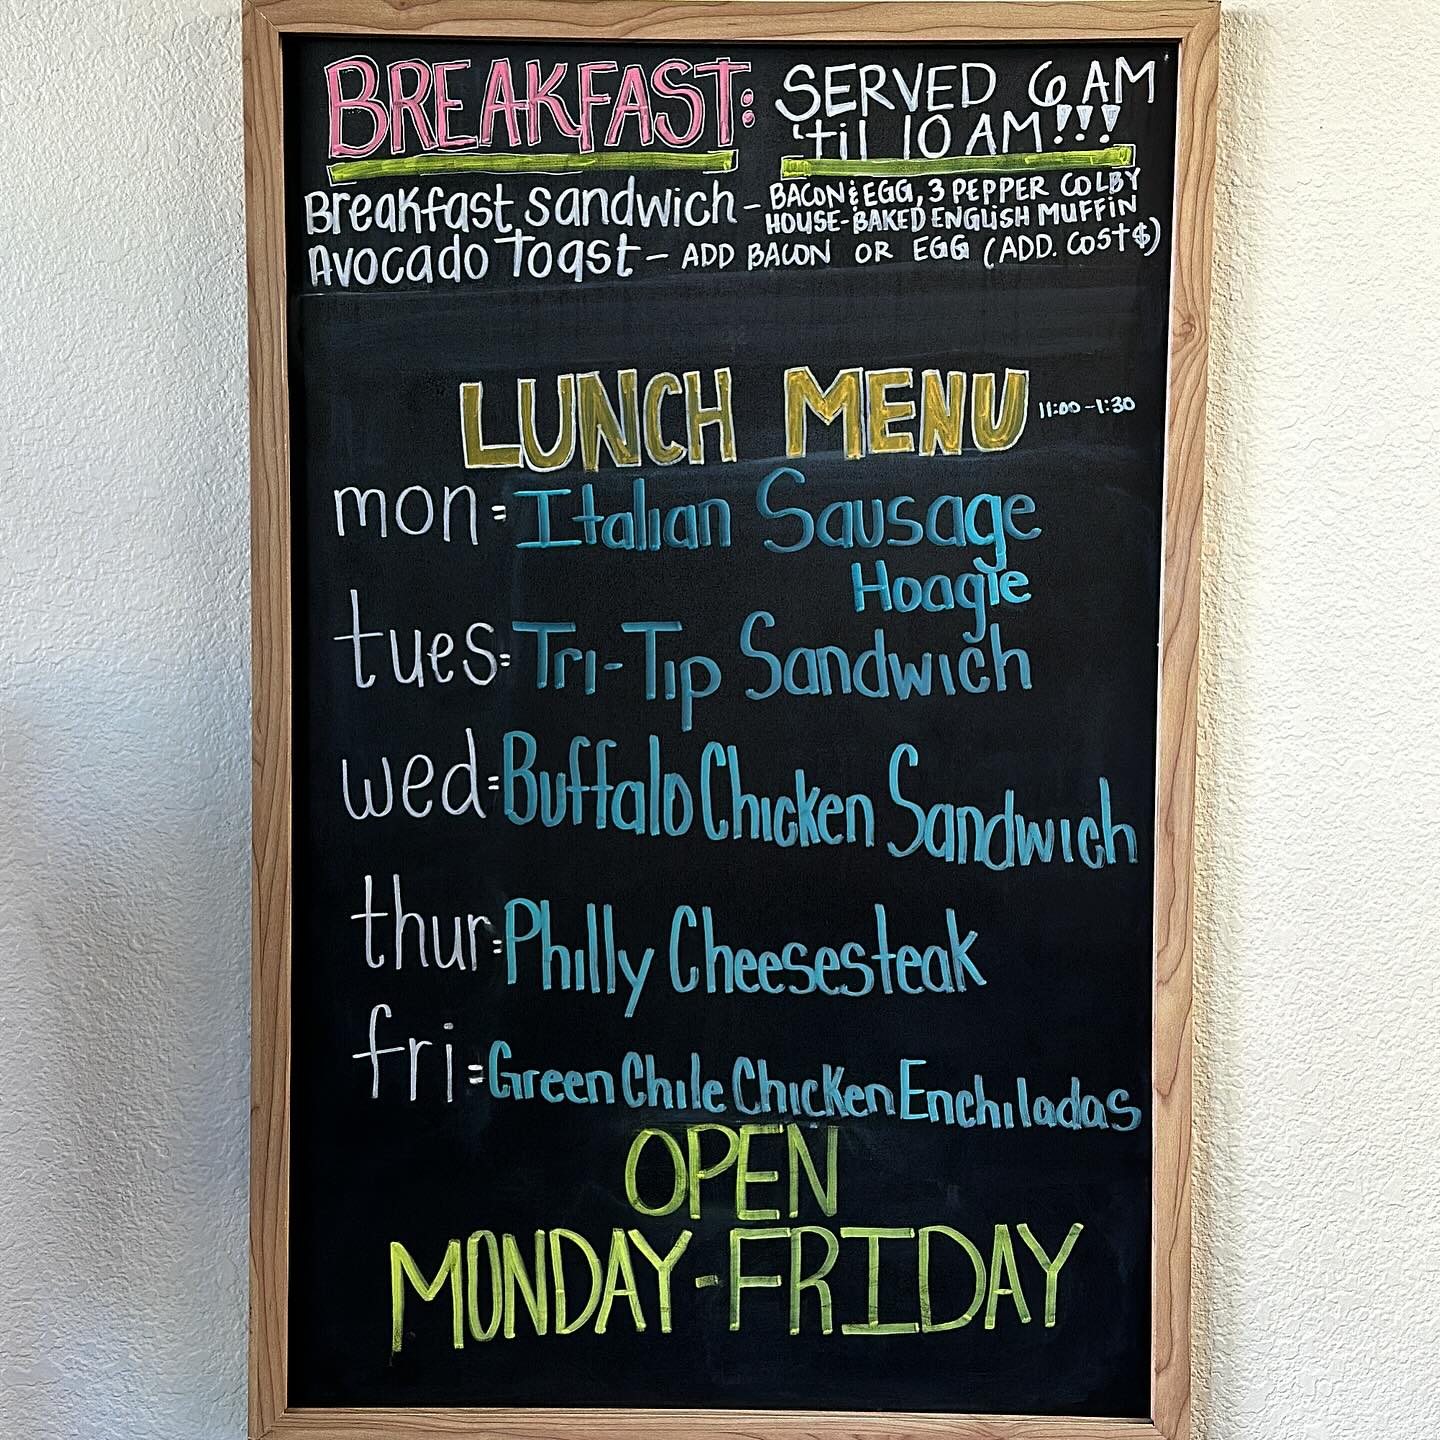 BREAKFAST:
SERVED 6 AM
'til 10 AM!!!
Breakfast sandwich - BACON & EGG, 3 PEPPER COLBY
HOUSE-BAKED ENGLISH MUFFIN
Avocado Toast - ADD BACON OR EGG (ADD. COST $)
LUNCH MENU 11:00 - 1:30
mon= Italian Sausage
Hoagie
tues= Tri-Tip Sandwich
wed= Buffalo Chicken Sandwich
thur= Philly Cheesesteak
fri= Green Chile Chicken Enchiladas
OPEN
MONDAY-FRIDAY